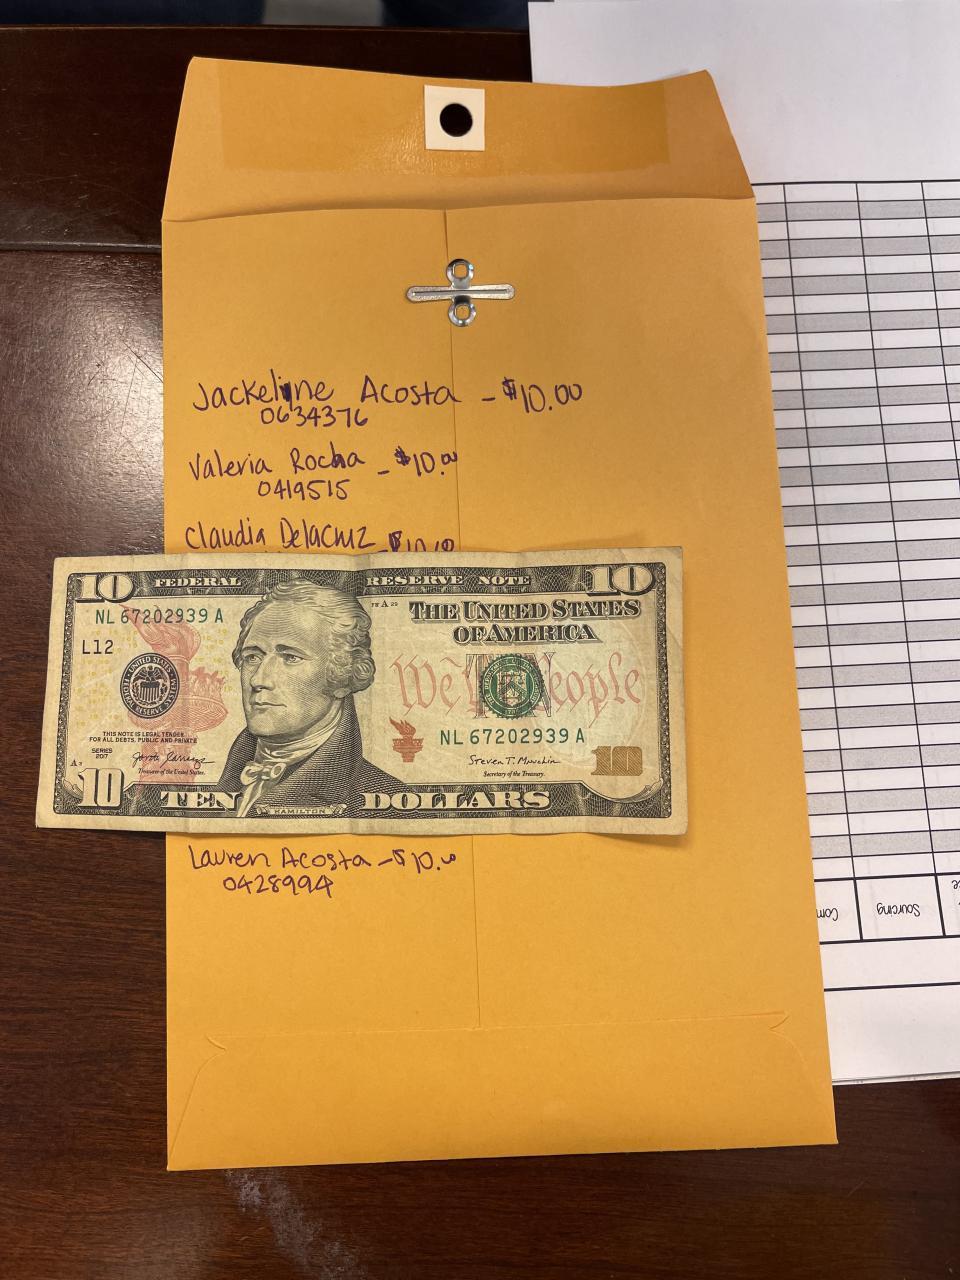 Jackelyne Acosta - $10.00
0634376
Valeria Rocha - $10.00
0419515
Claudia DelaCruz - $10.00
10 FEDERAL RESERVE NOTE 10
NL 67202939 A
THE UNITED STATES
OF AMERICA
L12
We The People
UNITED STATES FEDERAL RESERVE SYSTEM
NL 67202939 A
THIS NOTE IS LEGAL TENDER
FOR ALL DEBTS, PUBLIC AND PRIVATE
SERIES
2017
Treasurer of the United States.
Steven T. Mnuchin
Secretary of the Treasury.
10
A 3
10 TEN HAMILTON DOLLARS
Lauren Acosta - $10.00
0428994
Sourcing
Com